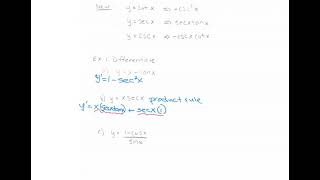 y = cot x ⇒ -csc²x
y = sec x ⇒ sec x tan x
y = csc x ⇒ -csc x cot x
Ex. 1 Differentiate
y = x - tan x
y' = 1 - sec²x
b) y = x sec x product rule
y' = x(secxtanx) + secx(1)
c) y = 1+cosx
sinx